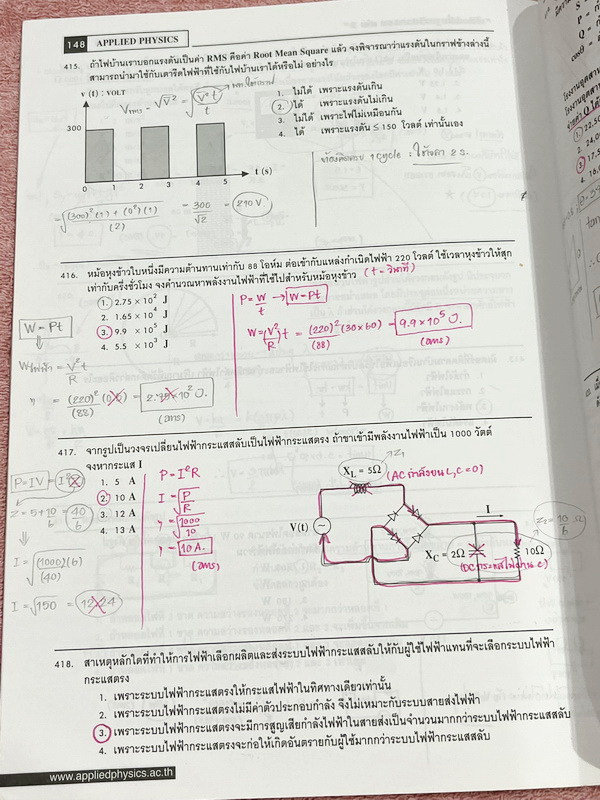 148 APPLIED PHYSICS
415. ถ้าไฟบ้านเราบอกแรงดันเป็นค่า RMS คือค่า Root Mean Square แล้ว จงพิจารณาว่าแรงดันในกราฟข้างล่างนี้
สามารถนำมาใช้กับเตารีดไฟฟ้าที่ใช้กับไฟบ้านเราได้หรือไม่ อย่างไร
v (t) : VOLT
300
0 1 2 3 4 5 t (s)
Vrms = √V² = √(V²t/t)
1. ไม่ได้ เพราะแรงดันเกิน
2. ได้ เพราะแรงดันไม่เกิน
3. ไม่ได้ เพราะไฟไม่เหมือนกัน
4. ได้ เพราะแรงดัน ≤ 150 โวลต์ เท่านั้นเอง
1 cycle : ใช้เวลา 2 s.
= √((300)²(1) + (0²)(1)/(2)) = 300/√2 = 210 V
416. หม้อหุงข้าวใบหนึ่งมีความต้านทานเท่ากับ 88 โอห์ม ต่อเข้ากับแหล่งกำเนิดไฟฟ้า 220 โวลต์ ใช้เวลาหุงข้าวให้สุก
เท่ากับครึ่งชั่วโมง จงคำนวณหาพลังงานไฟฟ้าที่ใช้ไปสำหรับหม้อหุงข้าว (t = วินาที)
1. 2.75 × 10² J
2. 1.65 × 10⁴ J
3. 9.9 × 10⁵ J
4. 5.5 × 10³ J
P = W/t → W = Pt
W = (V²/R)t = (220)²(30×60)/(88) = 9.9×10⁵ J.
(ans)
W = Pt
Wไฟฟ้า = V²t/R
(ans)
417. จากรูปเป็นวงจรเปลี่ยนไฟฟ้ากระแสสลับเป็นไฟฟ้ากระแสตรง ถ้าขาเข้ามีพลังงานไฟฟ้าเป็น 1000 วัตต์
จงหากระแส I
1. 5 A
2. 10 A
3. 12 A
4. 13 A
P = I²R
I = √(P/R)
" = √(1000/10)
" = 10 A.
(ans)
P = IV = I²Z
Z = 5 + 10/6 = 40/6
I = √((1000)(6)/(40))
I = √150 = 12.24
XL = 5Ω Z₁
(AC กำลังบน L, C = 0)
V(t)
I
XC = 2Ω
10Ω
Z₂ = 10/6 Ω
418. สาเหตุหลักใดที่ทำให้การไฟฟ้าเลือกผลิตและส่งระบบไฟฟ้ากระแสสลับให้กับผู้ใช้ไฟฟ้าแทนที่จะเลือกระบบไฟฟ้า
กระแสตรง
1. เพราะระบบไฟฟ้ากระแสตรงให้กระแสไฟฟ้าในทิศทางเดียวเท่านั้น
2. เพราะระบบไฟฟ้ากระแสตรงไม่มีค่าตัวประกอบกำลัง จึงไม่เหมาะกับระบบสายส่งไฟฟ้า
3. เพราะระบบไฟฟ้ากระแสตรงจะมีการสูญเสียกำลังไฟฟ้าในสายส่งเป็นจำนวนมากกว่าระบบไฟฟ้ากระแสสลับ
4. เพราะระบบไฟฟ้ากระแสตรงจะก่อให้เกิดอันตรายกับผู้ใช้มากกว่าระบบไฟฟ้ากระแสสลับ
www.appliedphysics.ac.th